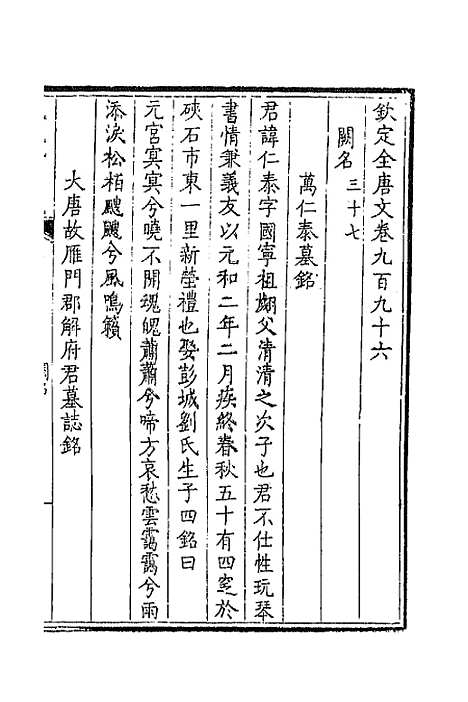 欽定全唐文卷九百九十六
闕名三十七
萬仁泰墓銘
君諱仁泰字國寧祖翃父清清之次子也君不仕性玩琴
書情兼義友以元和二年二月疾終春秋五十有四窆於
硤石市東一里新塋禮也娶彭城劉氏生子四銘曰
元宮寞寞兮曉不開瑰魄蕭蕭兮啼方哀愁雲靄靄兮雨
添淚松柏颼颼兮風鳴籟
大唐故雁門郡解府君墓誌銘